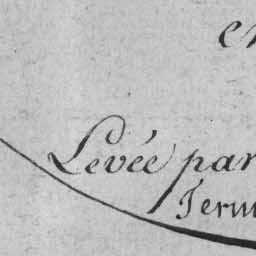 en
Levée par
Term